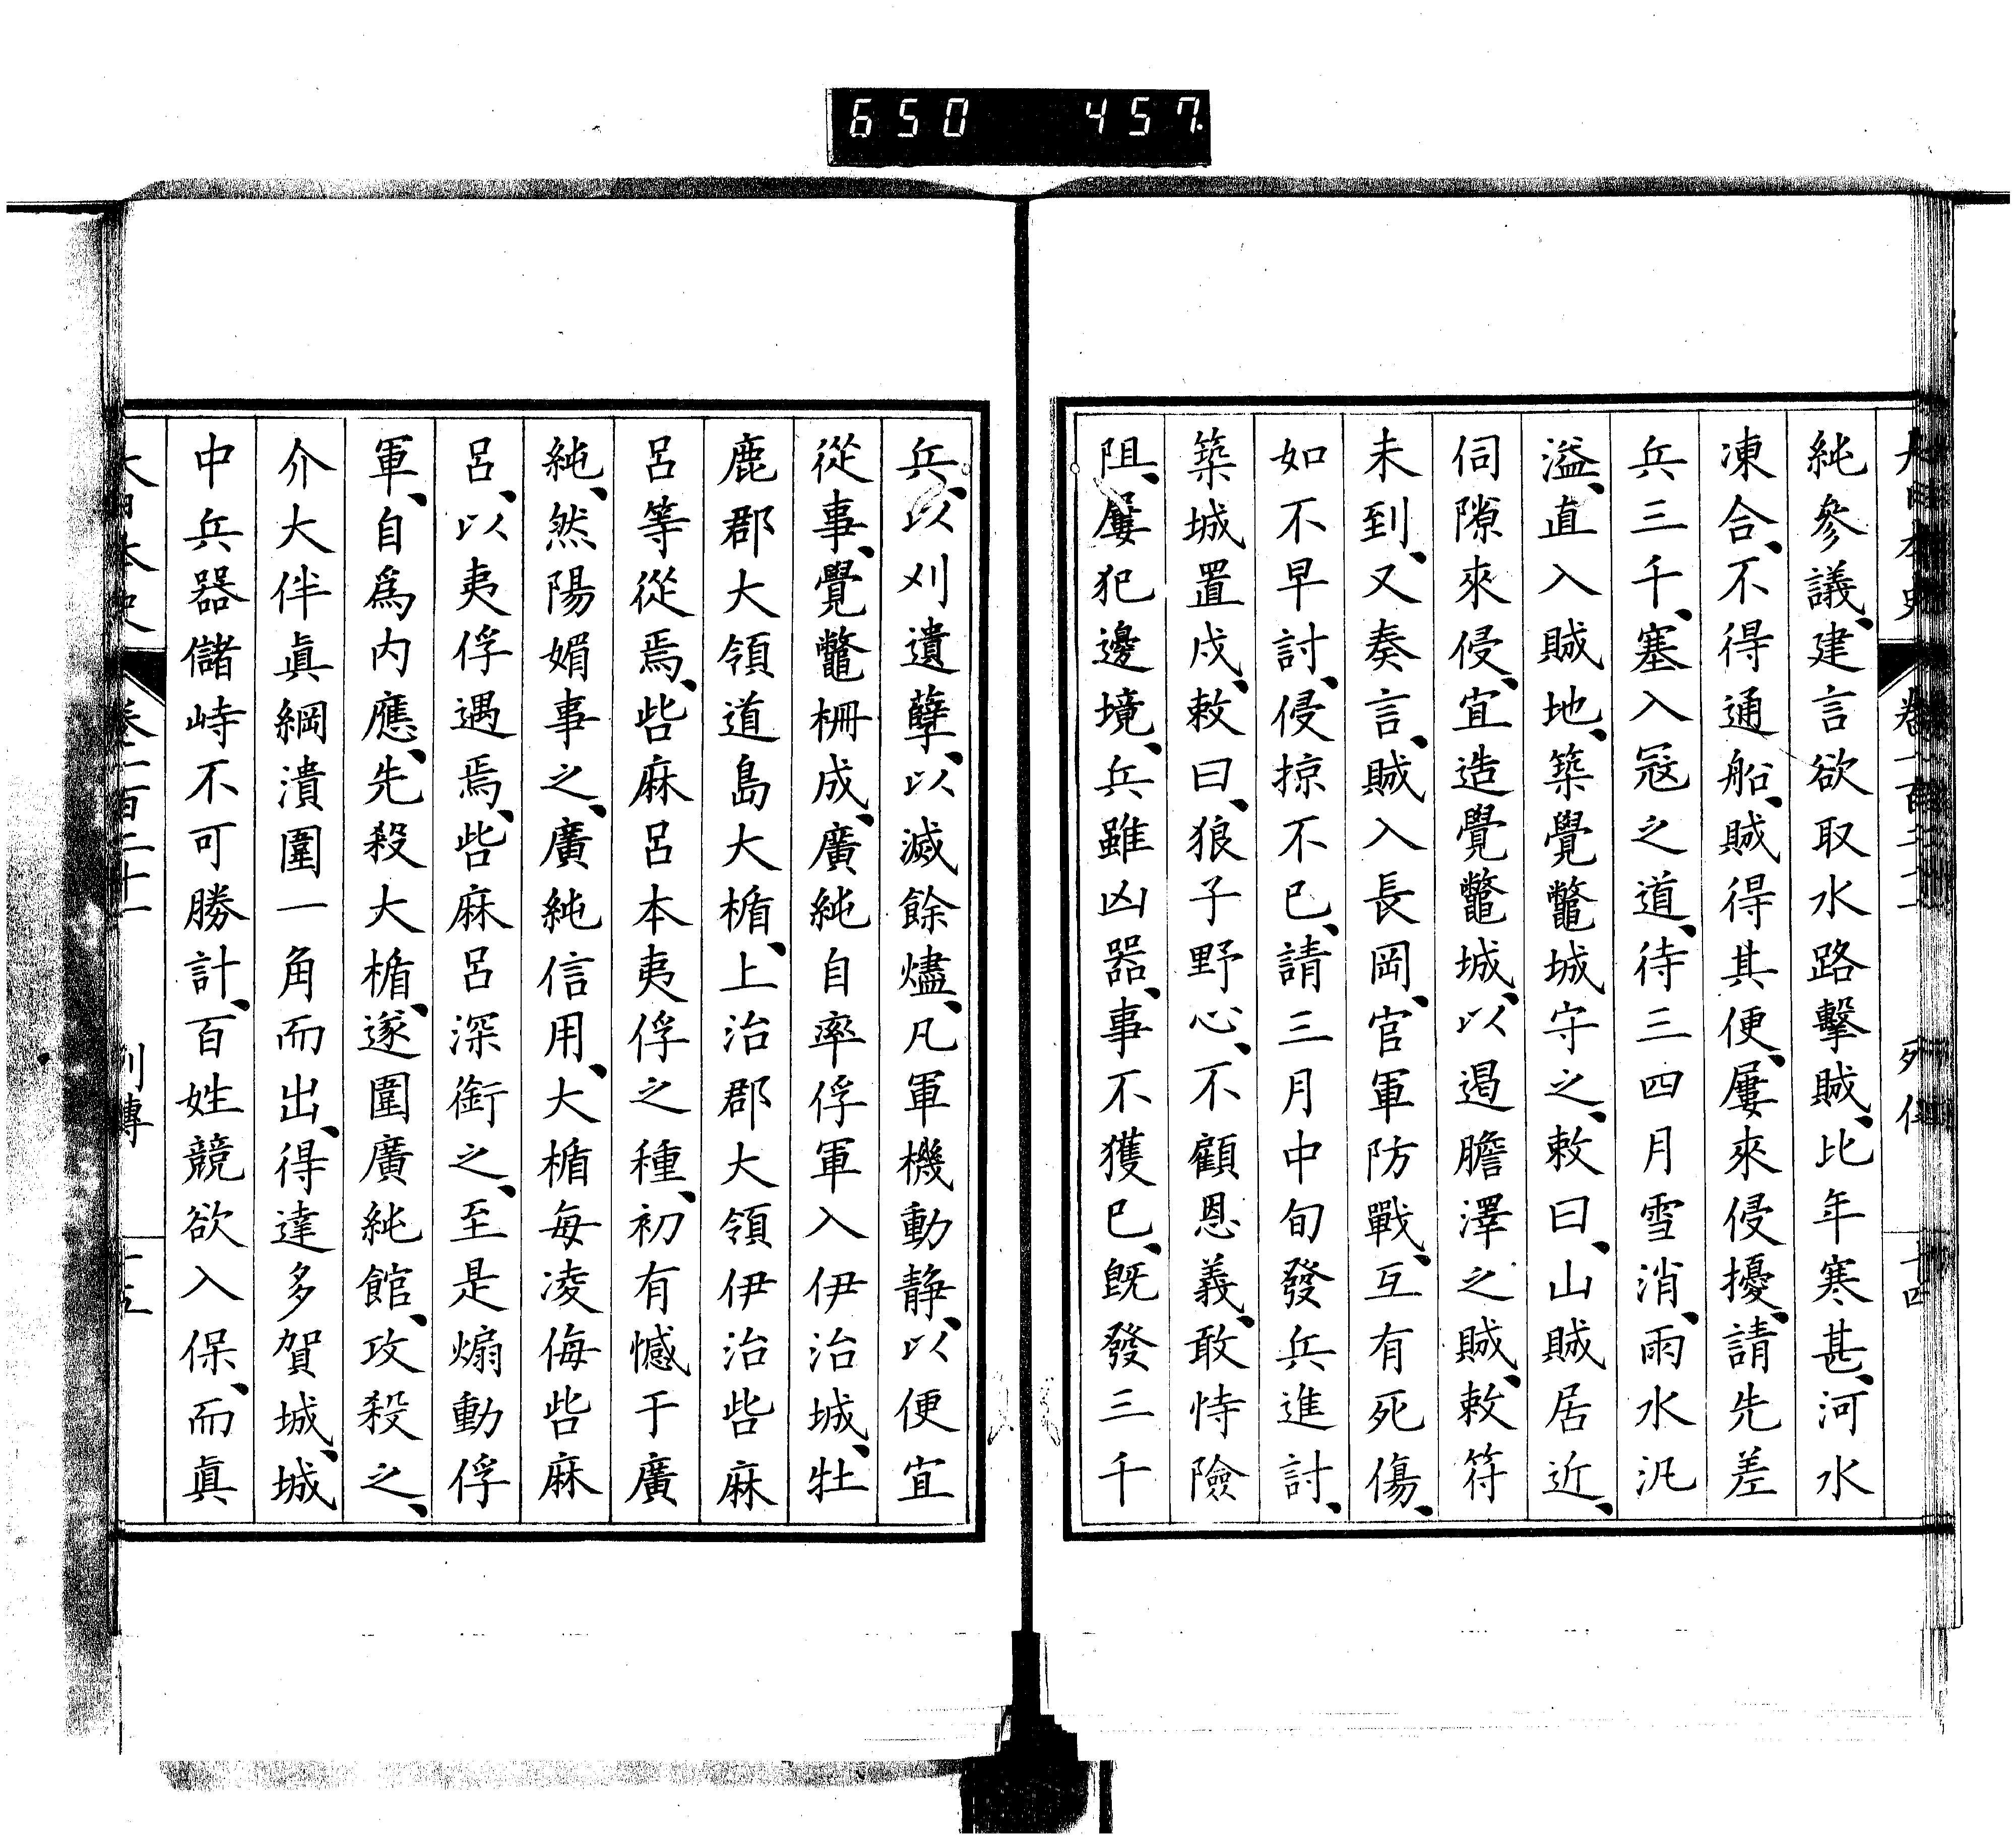 650 457
純參議、建言欲取水路擊賊、比年寒甚、河水
凍合、不得通船、賊得其便、屢來侵擾、請先差
兵三千、塞入冦之道、待三四月雪消、雨水汎
溢、直入賊地、築覺鼈城守之、敕曰、山賊居近、
伺隙來侵、宜造覺鼈城、以遏膽澤之賊、敕符
未到、又奏言、賊入長岡、官軍防戰、互有死傷、
如不早討、侵掠不已、請三月中旬發兵進討、
築城置戍、敕曰、狼子野心、不顧恩義、敢恃險
阻、屢犯邊境、兵雖凶器、事不獲已、旣發三千
兵、以刈遺孽、以滅餘燼、凡軍機動靜、以便宜
從事、覺鼈柵成、廣純自率俘軍入伊治城、牡
鹿郡大領道島大楯、上治郡大領伊治呰麻
呂等從焉、呰麻呂本夷俘之種、初有憾于廣
純、然陽媚事之、廣純信用、大楯每凌侮呰麻
呂、以夷俘遇焉、呰麻呂深銜之、至是煽動俘
軍、自爲内應、先殺大楯、遂圍廣純館、攻殺之、
介大伴眞綱潰圍一角而出、得達多賀城、城
中兵器儲峙不可勝計、百姓競欲入保、而眞